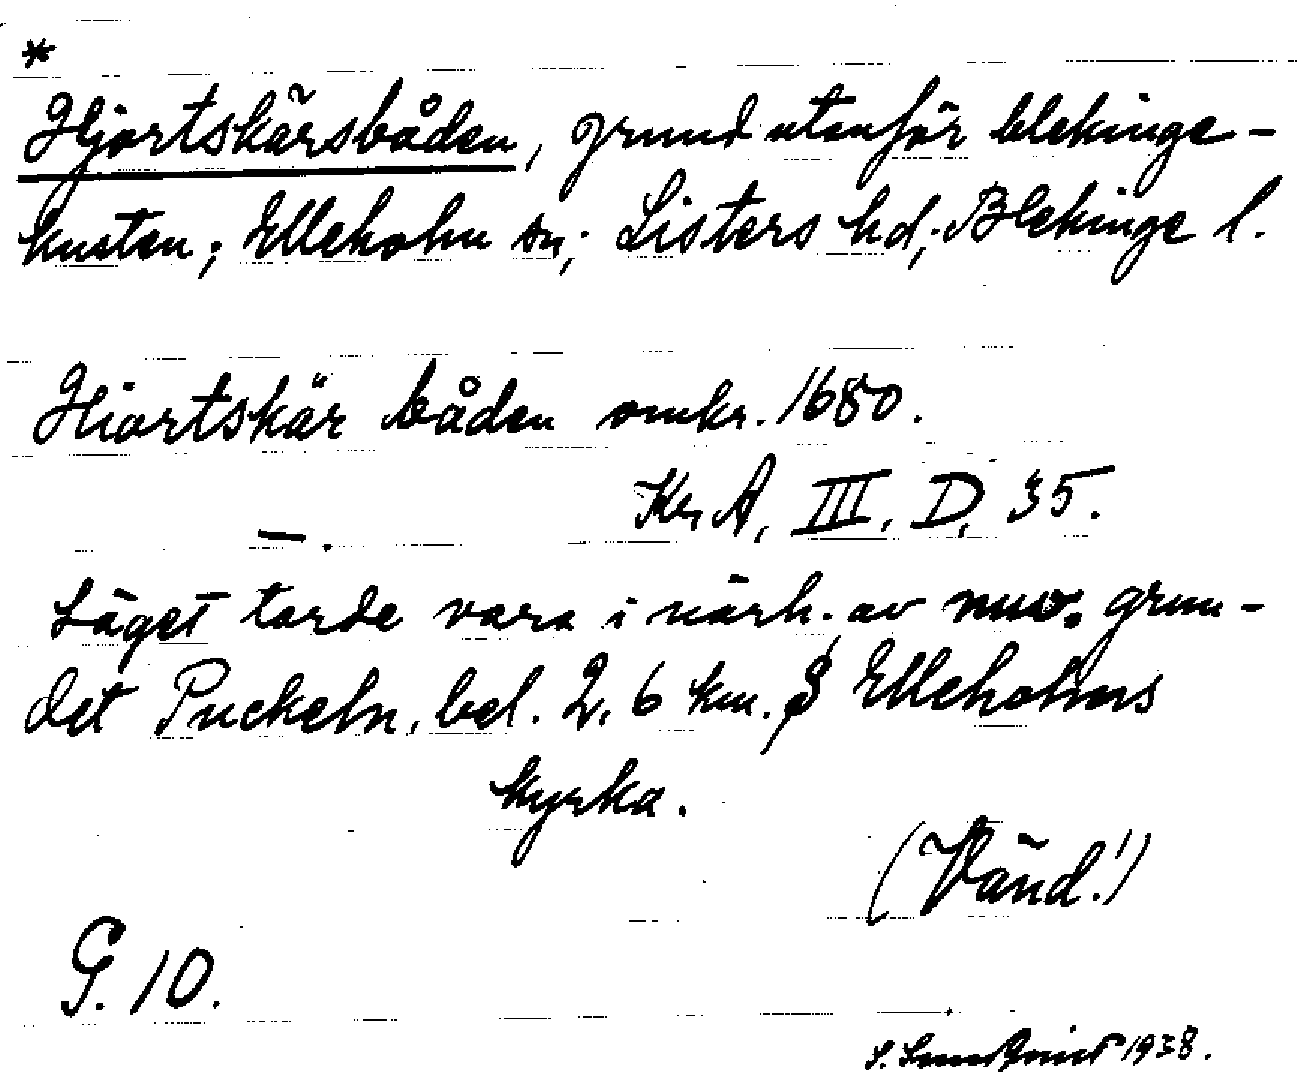 *
Hjortskärsbåden, grund utanför blekinge-
kusten; Elleholm sn; Listers hd; Blekinge l.
Hiortskär båden omkr. 1680.
Kr A, III, D, 35.
— .
Läget torde vara i närh. av nuv. grun-
det Puckeln, bel. 2,6 km. S Elleholms
kyrka.
(Vänd!)
G. 10.
1938.